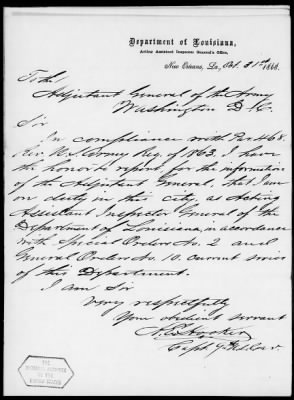 Department of Louisiana,
Acting Assistant Inspector General's Office,
New Orleans, La., Oct. 31st 1866.
To the
Adjutant General of the Army
Washington D. C.
Sir
In compliance with Par. 468.
Rev. U.S. Army Reg. of 1863, I have
the honor to report for the information
of the Adjutant General, that I am
on duty in this city, as Acting
Assistant Inspector General of the
Department of Louisiana, in accordance
with Special Orders No. 2 and
General Orders No. 10. current series
of this Department.
I am Sir
Very respectfully
Your obedient servant
Capt.
THE
NATIONAL ARCHIVES
OF THE
UNITED STATES